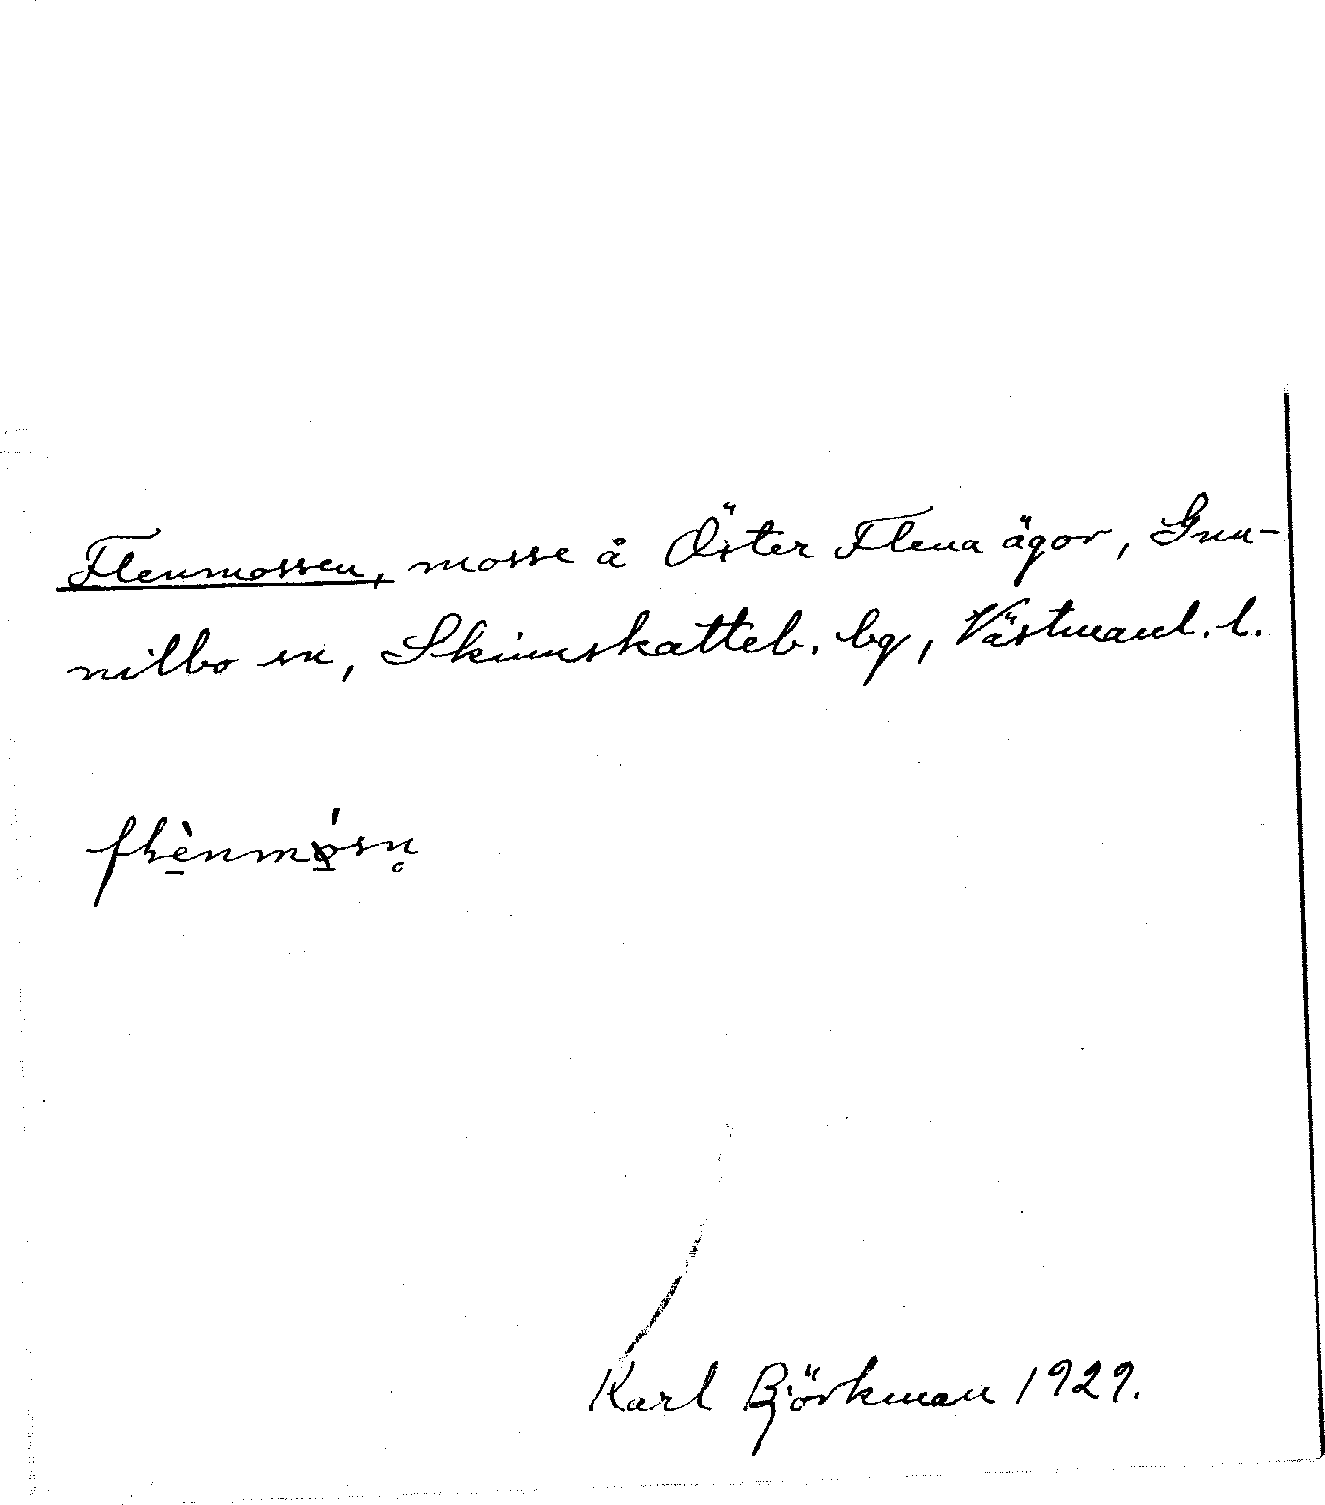 Flenmossen, mosse å Öster Flena ägor, Gun-
nilbo sn, Skinnskatteb. bg, Västmanl. l.
flènmósn̥
Karl Björkman 1929.